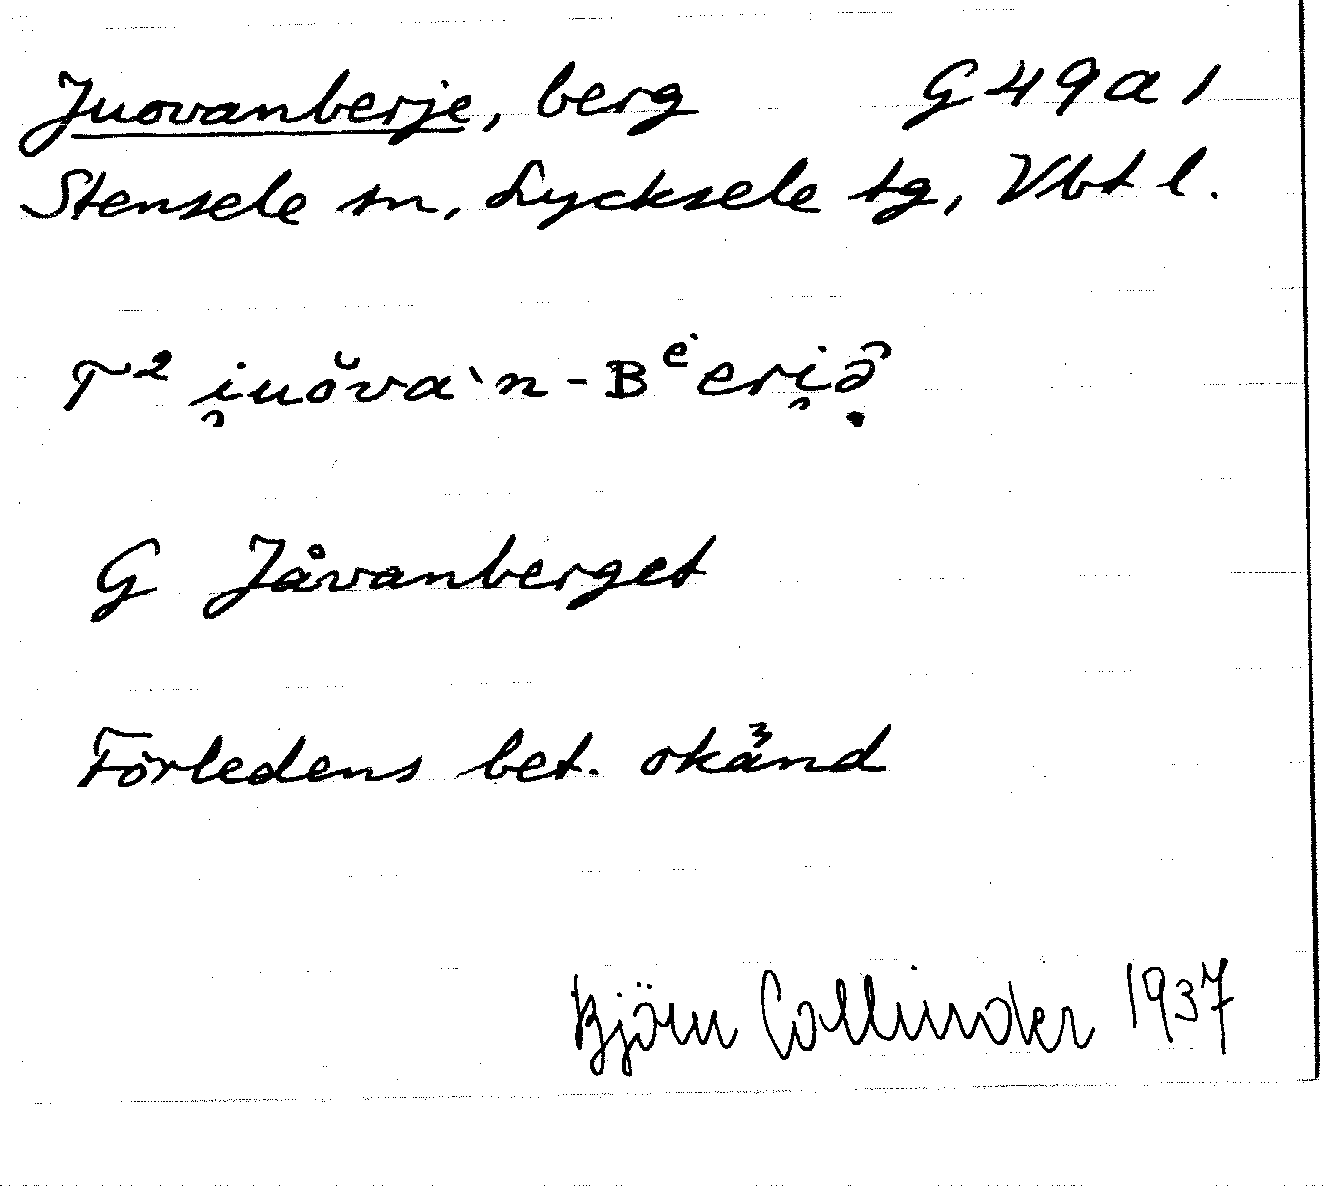 Juovanberje, berg G 49 a 1
Stensele sn, Lycksele tg, Vbt l.
T² i̯uŏva`n-Bᵉeri̯ə̣̑
G Jåvanberget
Förledens bet. okänd
Björn Collinder 1937